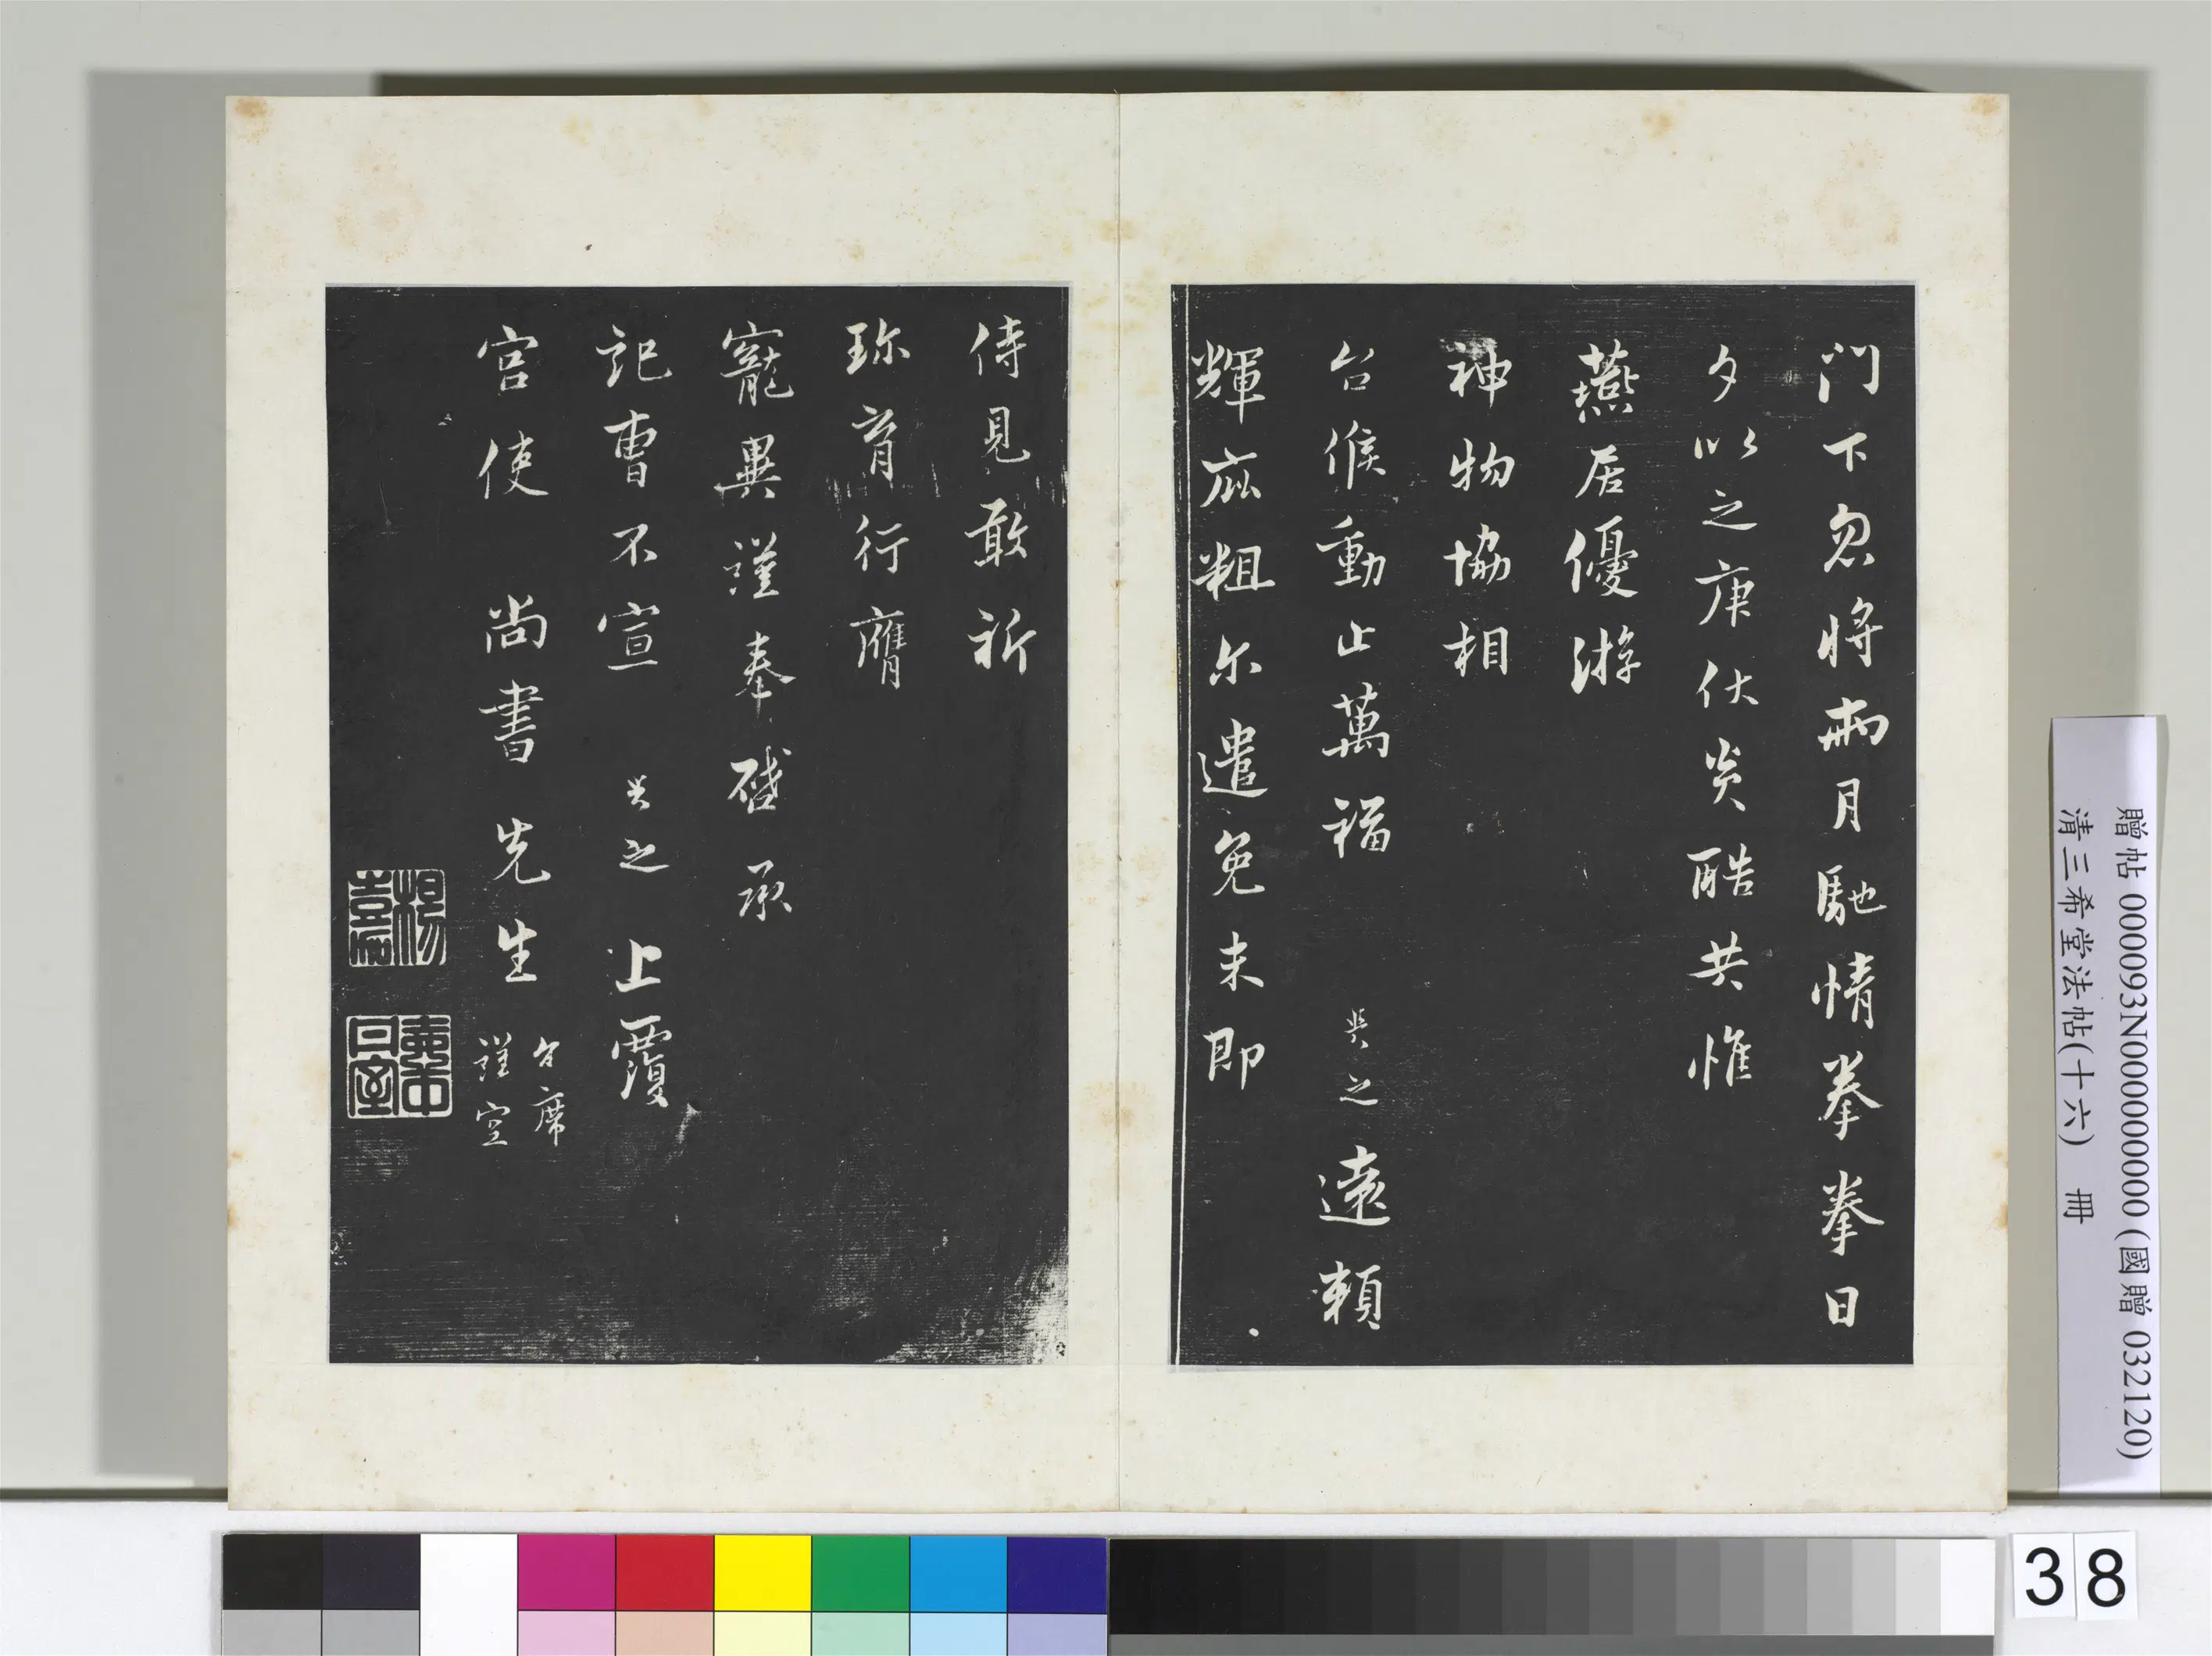 門下忽將兩月馳情拳拳日
夕以之庚伏炎酷共惟
燕居優游
神物協相
台候動止萬福 吳之遠賴
輝庇粗尓遣免未即
侍見敢祈
珎育行膺
寵異謹奉啟承
記曹不宣 之上覆
宮使 尚書先生
台席
謹空
贈帖 000093N000000000 (國贈 032120)
清三希堂法帖(十六) 冊
38